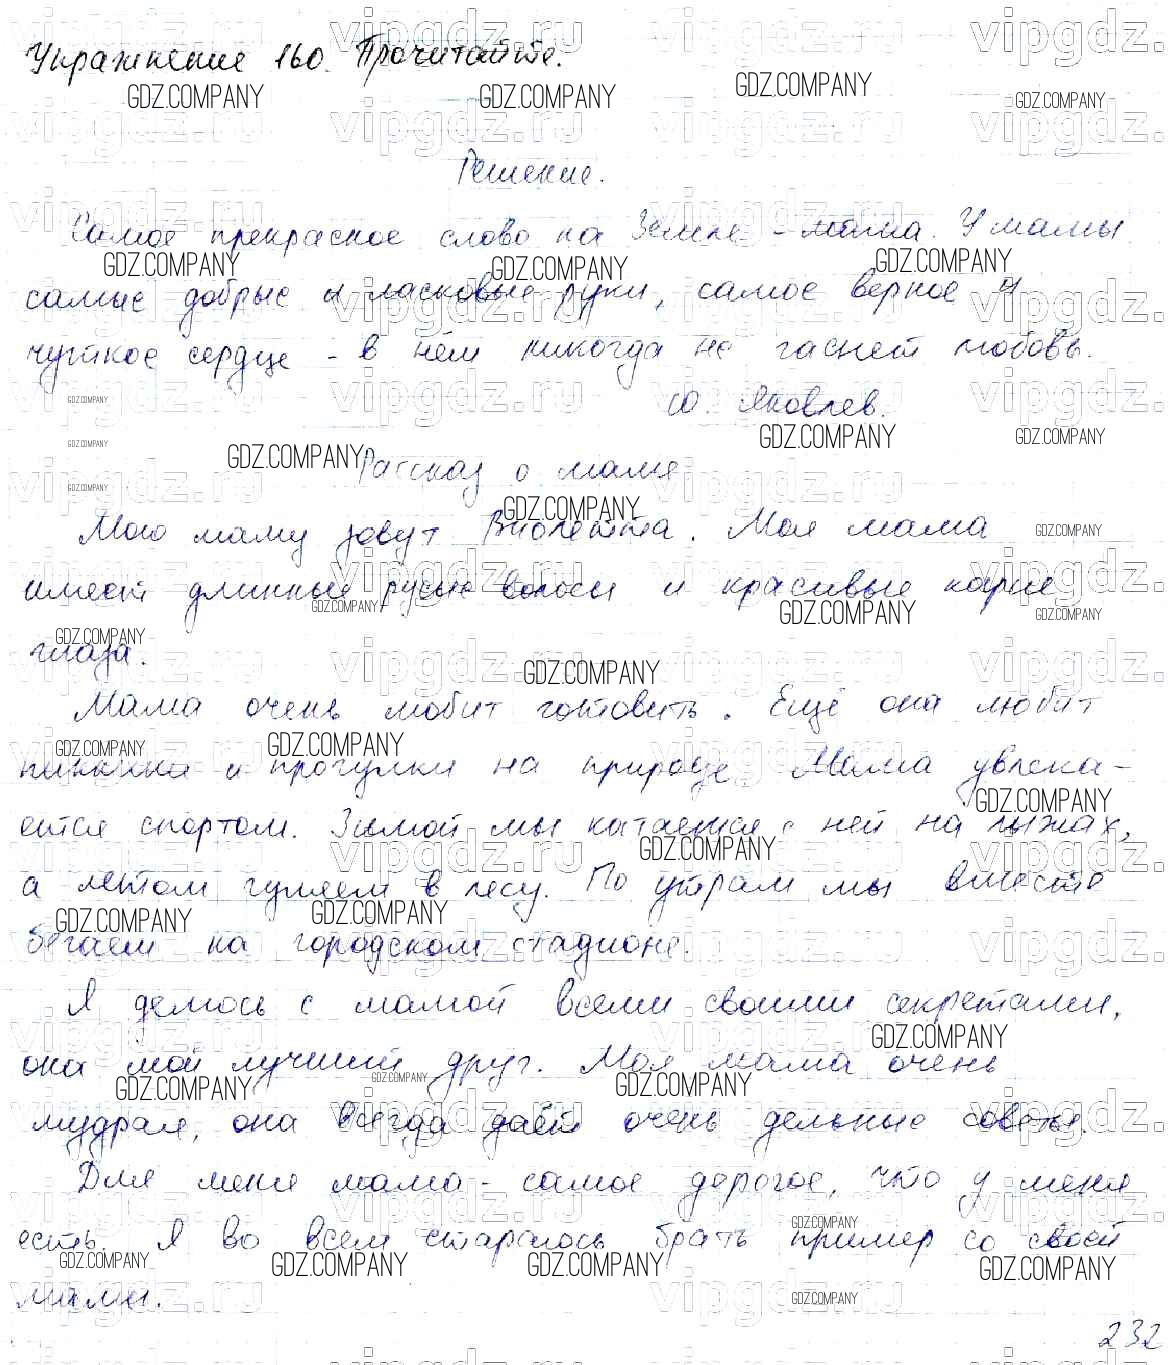 Упражнение 160. Прочитайте.
Решение.
Самое прекрасное слово на Земле - мама. У мамы
самые добрые и ласковые руки, самое верное и
чуткое сердце - в нём никогда не гаснет любовь.
Ю. Яковлев.
Рассказ о маме
Мою маму зовут Виолетта. Моя мама
имеет длинные русые волосы и красивые карие
глаза.
Мама очень любит готовить. Ещё она любит
пикники и прогулки на природе. Мама увлека-
ется спортом. Зимой мы катаемся с ней на лыжах,
а летом гуляем в лесу. По утрам мы вместе
бегаем на городском стадионе.
Я делюсь с мамой всеми своими секретами,
она мой лучший друг. Моя мама очень
мудрая, она всегда даёт очень дельные советы.
Для меня мама - самое дорогое, что у меня
есть. Я во всем стараюсь брать пример со своей
мамы.
232
vipgdz.ru
GDZ.COMPANY